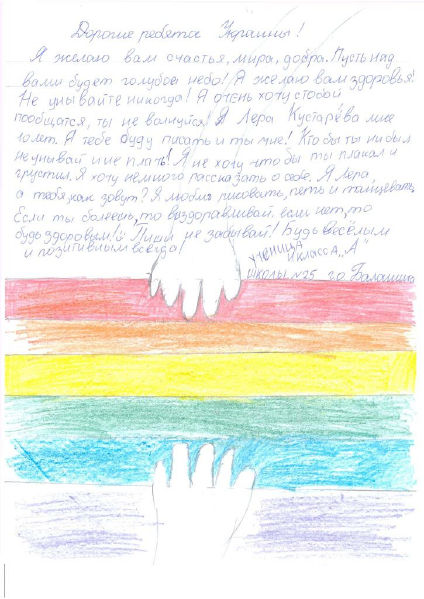 Дорогие ребята Украины!
Я желаю вам счастья, мира, добра. Пусть над
вами будет голубое небо! Я желаю вам здоровья!
Не унывайте никогда! Я очень хочу стобой
пообщатся, ты не волнуйся! Я Лера Кустарёва мне
10 лет. Я тебе буду писать и ты мне! Кто бы ты ни был
не унывай и не плачь! Я не хочу что бы ты плакал и
грустил. Я хочу немного рассказать о себе. Я Лера,
а тебя, как зовут? Я люблю рисовать, петь и танцевать.
Если ты болеешь, то воздоравливай. если нет, то
будь здоровым! Пиши не забывай! Будь весёлым
и позитивным всегда!
ученица
класса „А"
школы №25 г.о. Балашиха